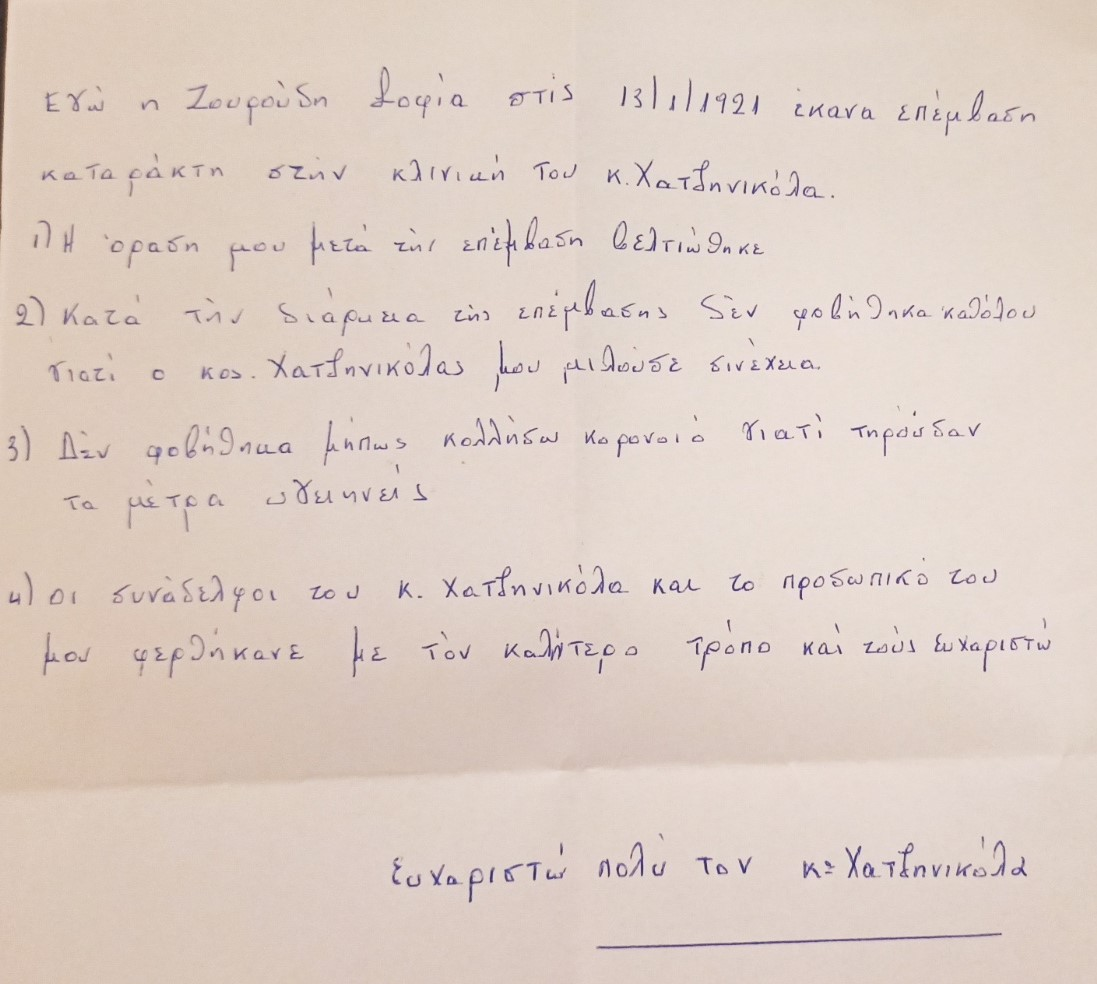 Εγώ η Ζουρούδη Σοφία στίς 13/1/1921 έκανα επέμβαση
καταράκτη στήν κλινική του κ. Χατζηνικόλα.
1) Η όραση μου μετά τής επέμβαση βελτιώθηκε
2) Κατά τήν διάρκεια τής επέμβασης δέν φοβήθηκα καθόλου
γιατί ο κος. Χατζηνικόλας μου μιλούσε σινέχεια.
3) Δέν φοβήθηκα μήπως κολλήσω κορονοιό γιατί τηρούσαν
τα μέτρα υγειηνείς
4) οι συνάδελφοι του κ. Χατζηνικόλα και το προσωπικό του
μου φερθήκανε με τόν καλήτερο τρόπο καί τούς ευχαριστώ
Ευχαριστώ πολύ τον κ= Χατζηνικόλα